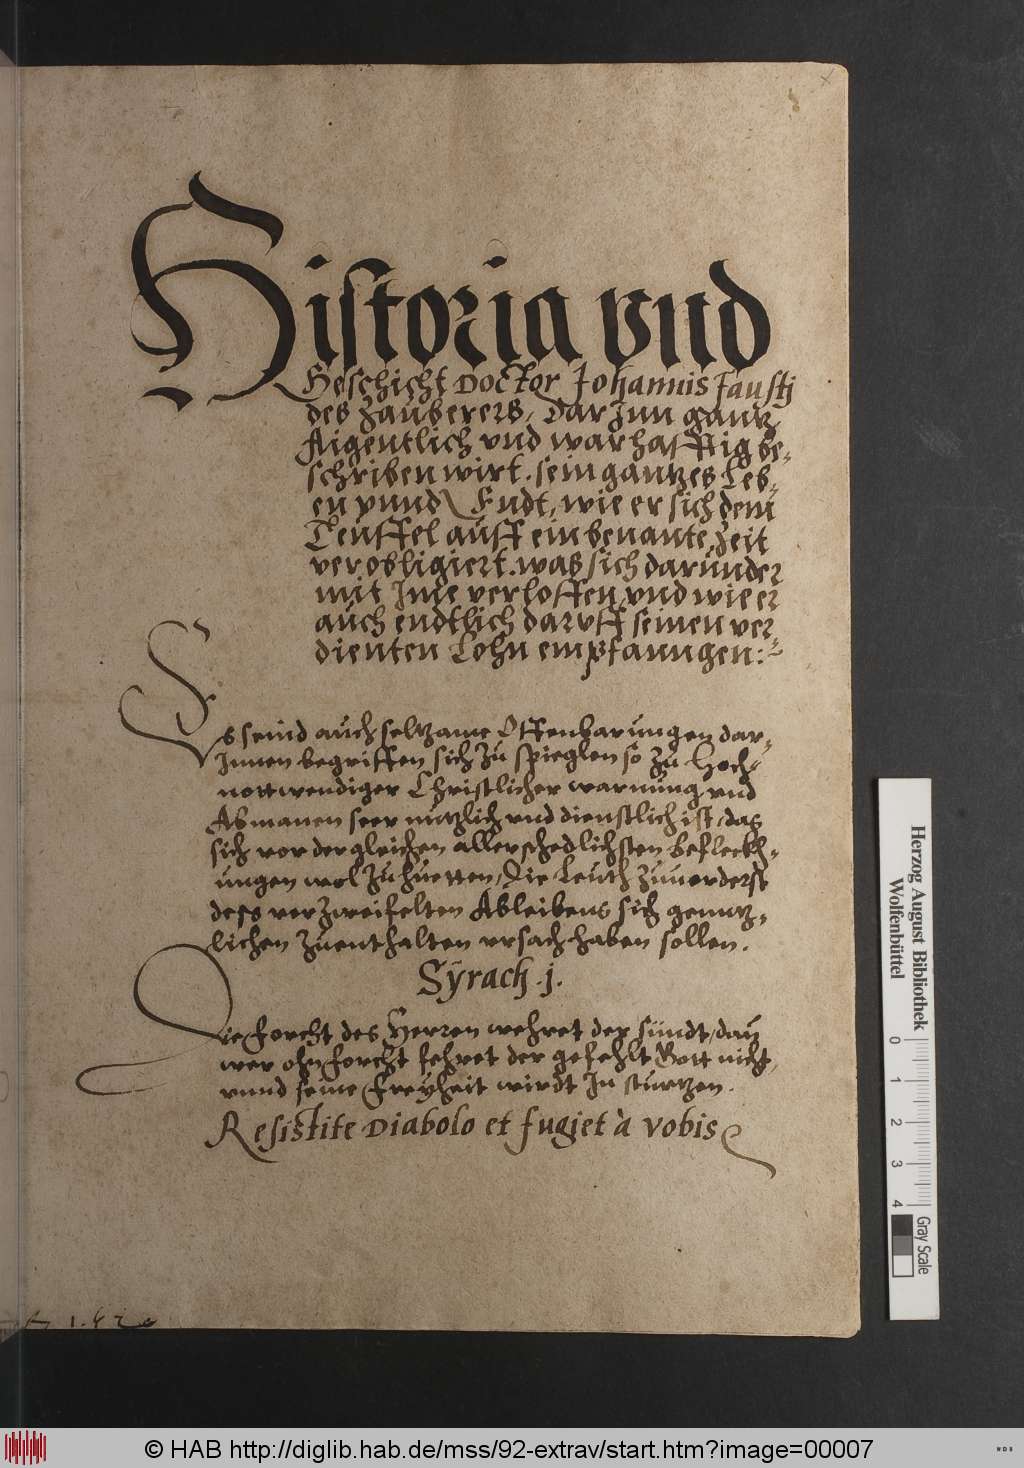 Historia vnd
Geschicht Doctor Johannis Faustj
des Zauberers, Darjnn gantz
Aigentlich vnd warhafftig be-
schriben wirt. sein gantzes Leb-
en vnnd Endt, wie er sich dem
Teuffel auff ein benante Zeit
verobligiert. was sich darunder
mit Jme verloffen, vnd wie er
auch endtlich daruff seinen ver-
dienten Lohn empfanngen:
Es seind auch seltzame Offenbarungen dar-
Jnnen begriffen sich zu spieglen so zu Hoch-
nottwendiger Christlicher warnung vnd
Abmanen seer nutzlich vnd dienstlich ist, das
sich vor dergleichen allerschedlichsten Befleckh-
ungen wol zuhuetten, Die Leuth zuuorderst
dess verzweifelten Ableibens sich genntz-
lichen zuenthalten vrsach haben sollen.
Sÿrach .j.
Die Forcht des Herren wehret der sündt, dañ
wer ohn forcht fehret der gefehlt Gott nicht,
vnnd seine Freÿheit wirdt Jn sturtzen.
Resistite Diabolo et fugjet à vobis
Herzog August Bibliothek
Wolfenbüttel
0 1 2 3 4
Gray Scale
© HAB http://diglib.hab.de/mss/92-extrav/start.htm?image=00007
WDB